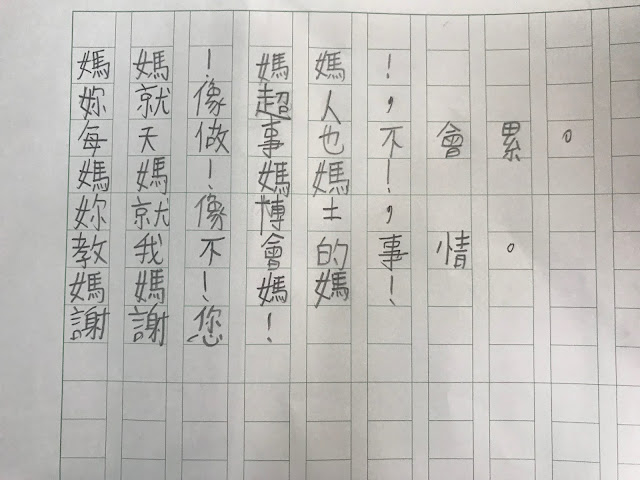 媽媽！媽媽！
妳就像超人，
每天做事也不會累。
媽媽！媽媽！
妳就像博士，
教我不會的事情。
媽媽！媽媽！
謝謝您！